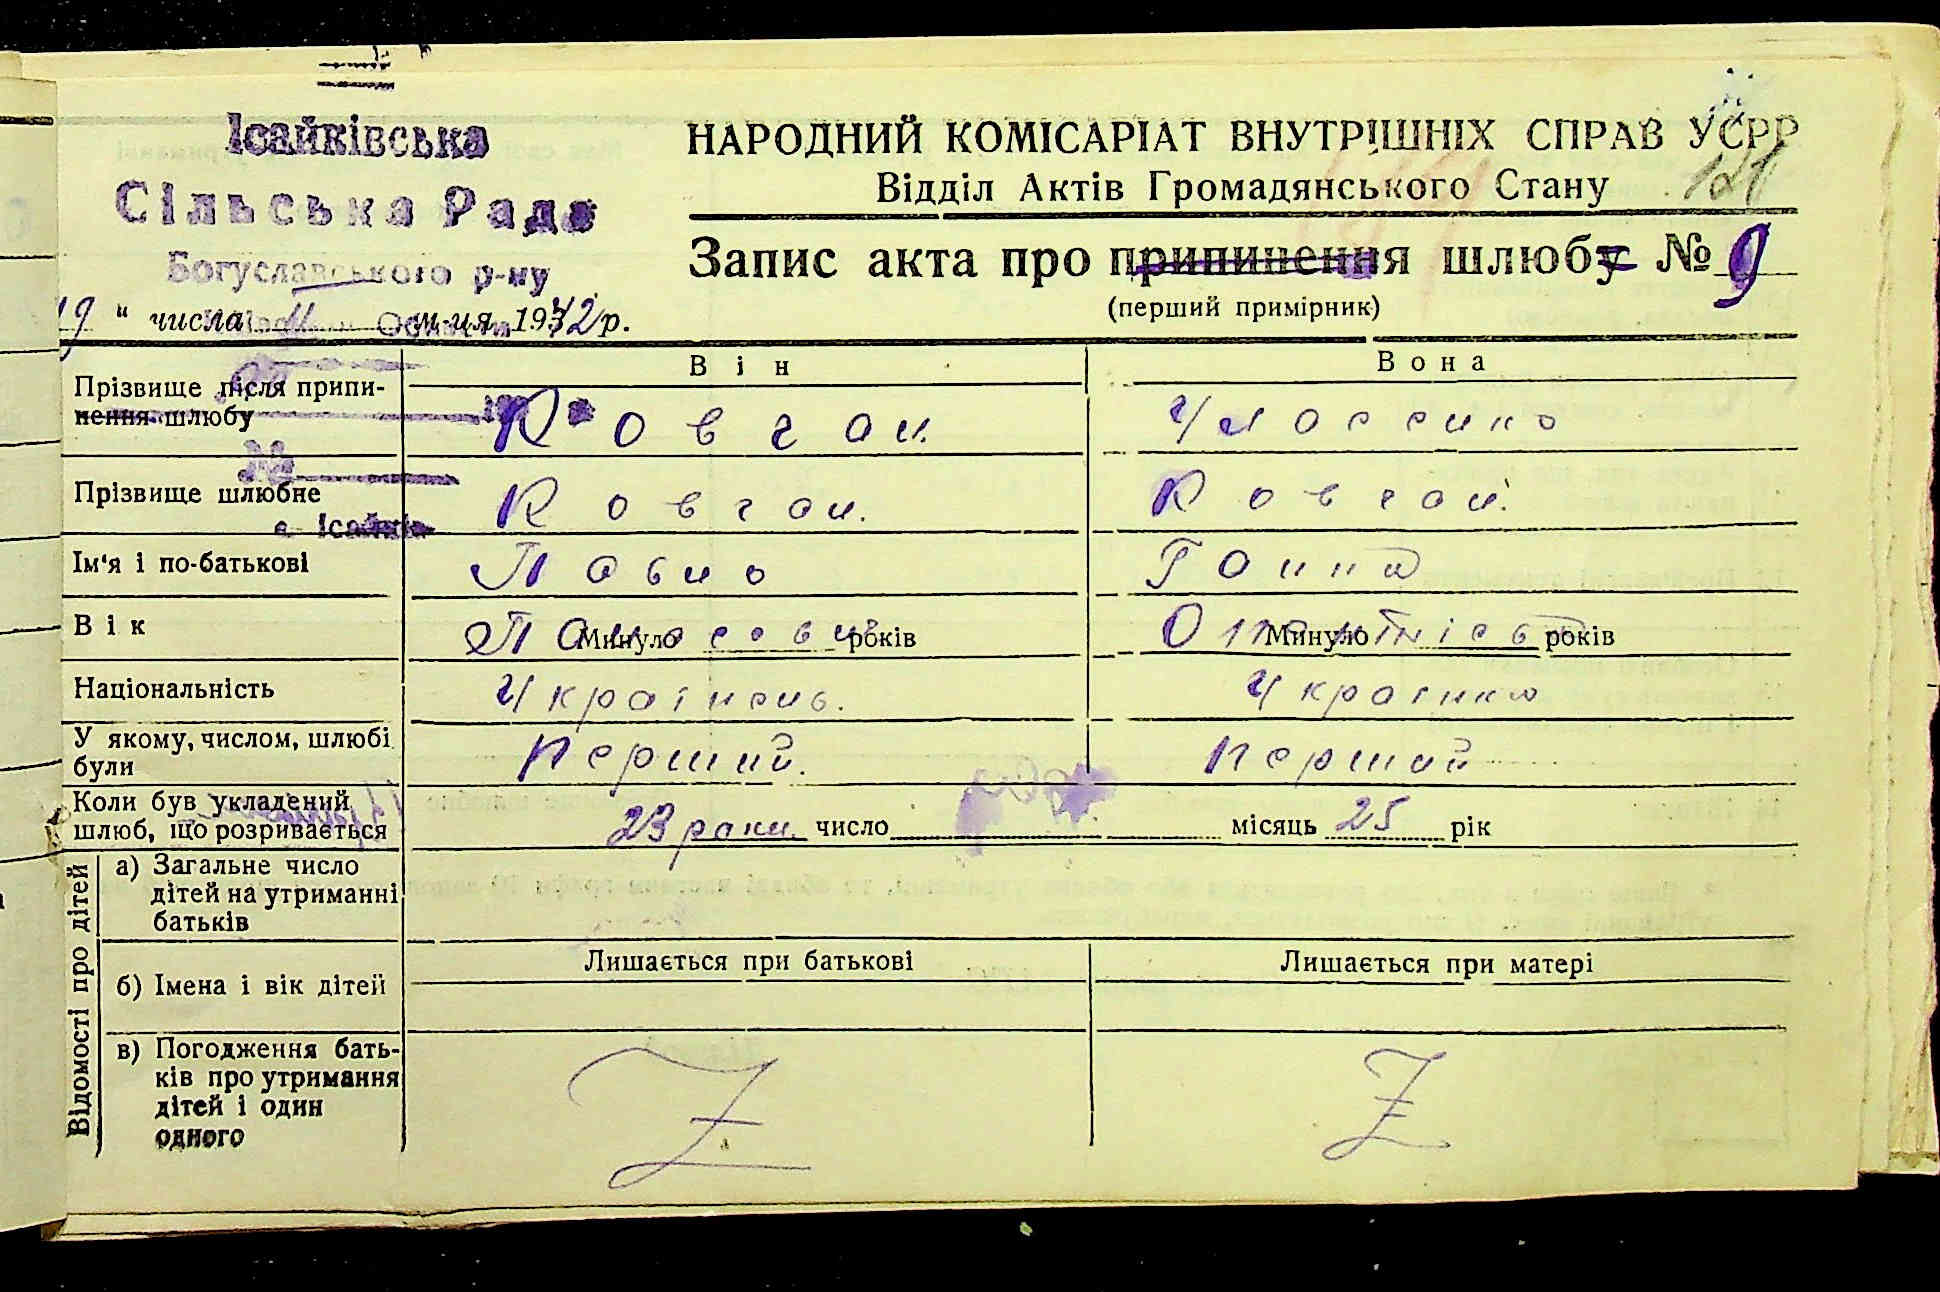 Ісайківська
Сільська Рада
Богуславського р-ну
НАРОДНИЙ КОМІСАРІАТ ВНУТРІШНІХ СПРАВ УСРР
Відділ Актів Громадянського Стану 121
Запис акта про припинення шлюбу № 9
(перший примірник)
19 " числа 11 м-ця 1942 р.
Він Вона
Прізвище після припи-
нення шлюбу Ковган
Прізвище шлюбне Ковган. Ковган.
с. Ісайки
Ім'я і по-батькові Павло Ганна
Вік Минуло років Минуло років
Національність Українець. Українка
У якому, числом, шлюбі
були Перший. Перший
Коли був укладений
шлюб, що розривається 23 роки число місяць 25 рік
Відомості про дітей
а) Загальне число
дітей на утриманні
батьків
Лишається при батькові Лишається при матері
б) Імена і вік дітей
в) Погодження бать-
ків про утримання
дітей і один
одного